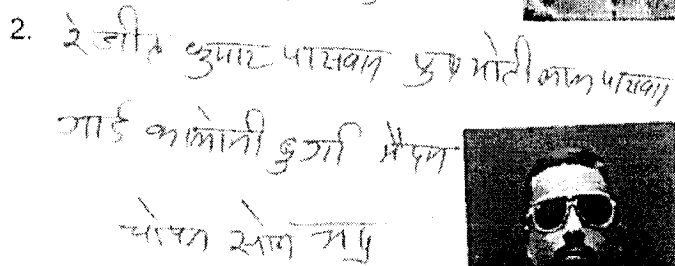 2. रंजीत कुमार पासवान पुत्र मोतीलाल पासवान
गार्ड कालोनी दुर्गा मैदान
चोपन सोनभद्र